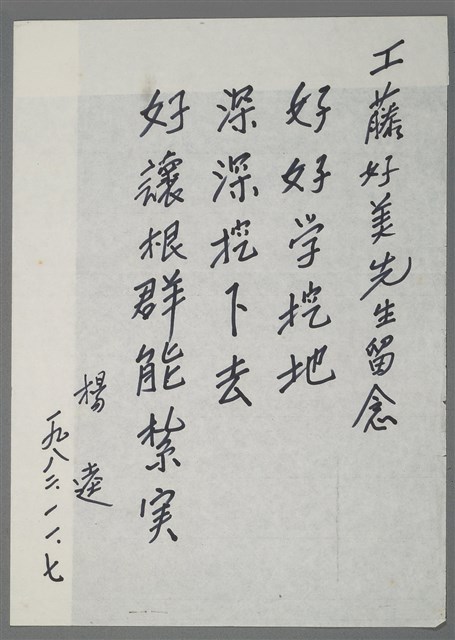 工藤好美先生留念
好好学挖地
深深挖下去
好讓根群能紮实
楊逵
一九八二.一一.七